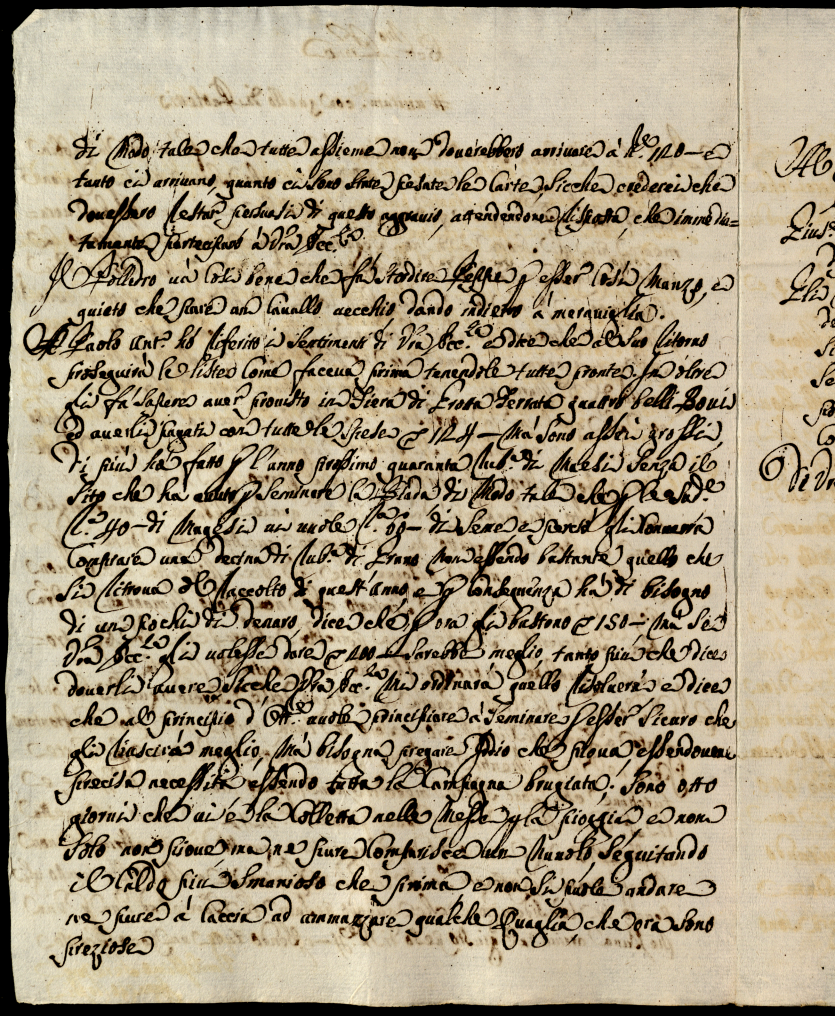 di Modo tale che tutte assieme non doverebbero arrivare à lb.e 120 – e
tanto ci arrivano, quanto ci sono state pesate le Carte, sicche crederei che
dovessero restar persuasi di questo aggravio, attendendone risposta, che immedia=
tamente parteciparò à Vra Ecc.za
Il Polledro và così bene che fà stordire Peppe p esser così Manzo, e
quieto che pare un Cavallo vecchio dando indietro à meraviglia.
A Paolo Ant.o hò riferito i sentimenti di Vra Ecc.za e dice che al suo ritorno
proseguirà le liste come faceva prima tenendole tutte pronte. In oltre
gli fà sapere aver provisto in Fiera di Grotta Ferrata quattro belli Bovi
ed averli pagati con tutte le spese 124 – Mà sono assai grossi,
di più hà fatto p l'anno prossimo quaranta Rub.a di Maesi senza il
sito che ha p seminare la Biada di Modo tale che p le sud.e
R.a 40 – di Magesi vi vuole R.a 00 – di seme e perciò gli converrà
comprare una decina di Rub.a di Grano non essendo bastante quello che
si ritrova del raccolto di quest'anno e p conseguenza hà di bisogno
di un pochi di denaro, dice che p ora gli bastono 150 – Mà se
Vra Ecc.za gli volesse dare 200 – sarebbe meglio, tanto più che dice
doverli avere sicche Vra Ecc.za Mi ordinarà quello risolverà e dice
che al principio d'Ott.e vuole principiare à seminare p esser sicuro che
gli riuscirà meglio, Mà bisogna pregare Iddio che piova, essendovene
precisa necessità essendo tutta la Campagna brugiata; sono otto
giorni che vi è la Colletta nelle Messe p la pioggia e non
solo non piove, ma ne pure comparisce un Nuvolo, seguitando
il Caldo più smanioso che prima e non si puole andare
ne pure à Caccia ad ammazzare qualche Quaglia, che ora sono
preziose